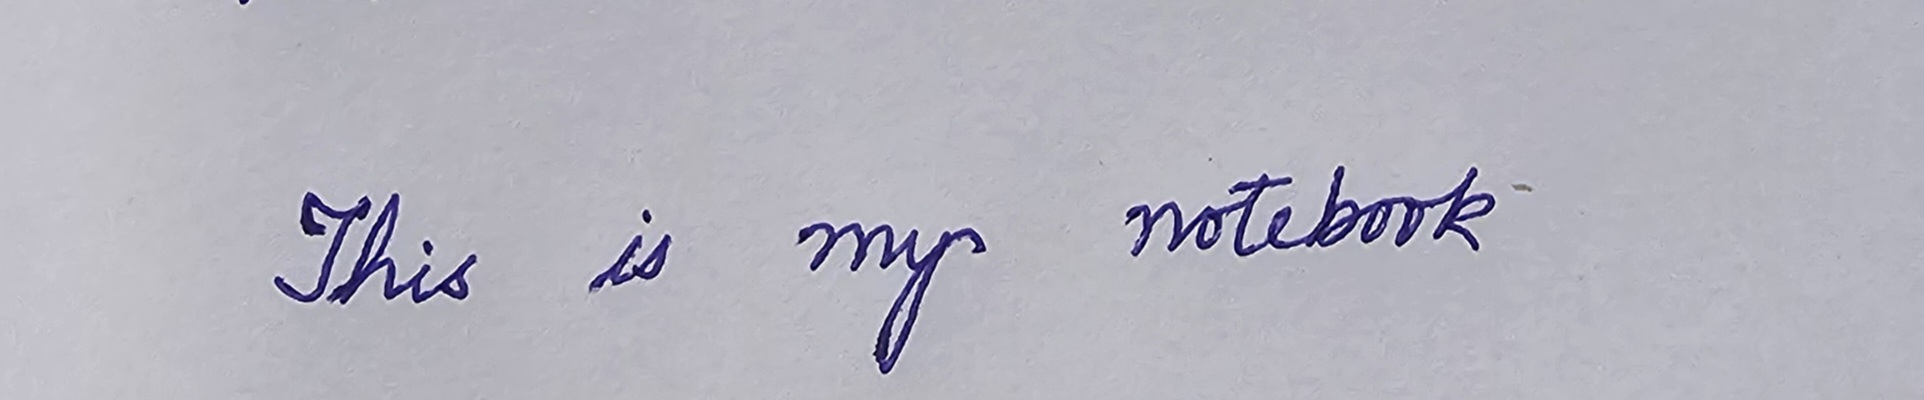 This is my notebook